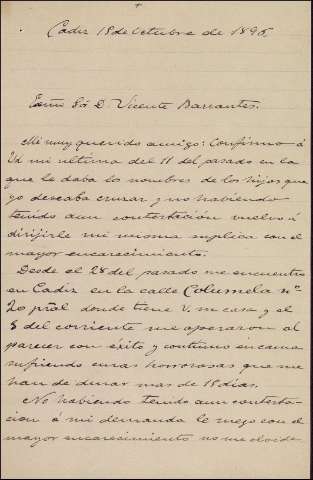 Cadiz 18 de Octubre de 1896.
Exmo Sôr D. Vicente Barrantes.
Mi muy querido amigo: Confirmo á
Vd mi ultima del 11 del pasado en la
que le daba lo nombres de los hijos que
yo deseaba cruzar y no habiendo
tenido aun contestación vuelvo á
dirijirle mi misma suplica con el
mayor encarecimiento.
Desde el 28 del pasado me encuentro
en Cadiz en la calle Columela nº
20 pral donde tiene V. su casa y el
5 del corriente me operaron al
parecer con éxito y continuo en cama
sufriendo curas horrorosas que me
han de durar mas de 15 dias.
No habiendo tenido aun contesta-
cion á mi demanda le ruego con el
mayor encarecimiento no me olvide